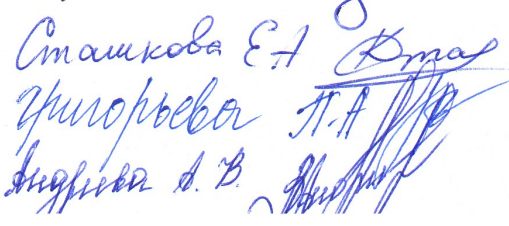 Сташкова Е.А
Григорьева П.А
Андриева А. В.